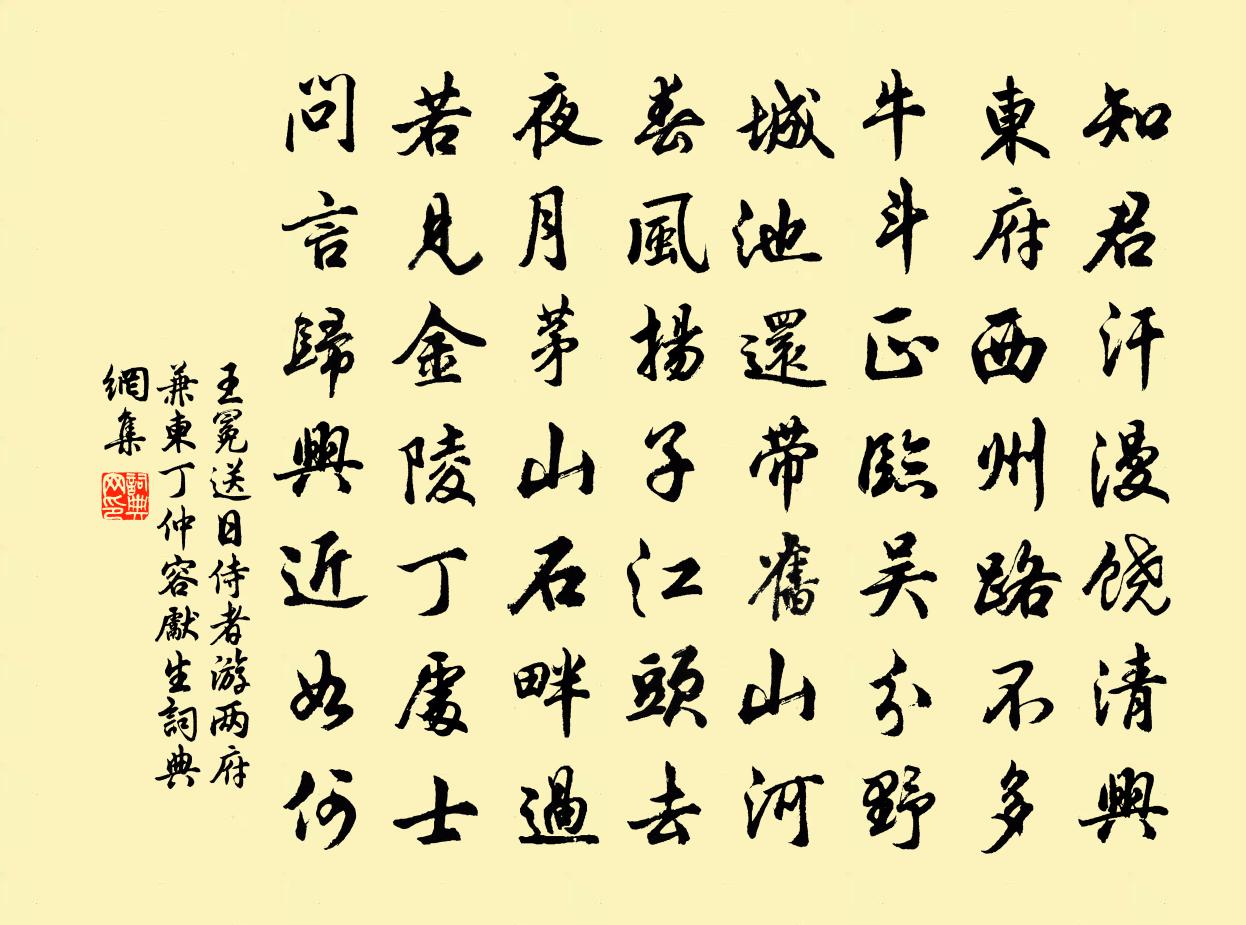 知君汗漫饒清興
東府西州路不多
牛斗正臨吴分野
城池還帶舊山河
春風揚子江頭去
夜月茅山石畔過
若見金陵丁處士
問言歸興近如何
王冕送日侍者游两府
兼東丁仲容獻生詞典
網集
詞典网印